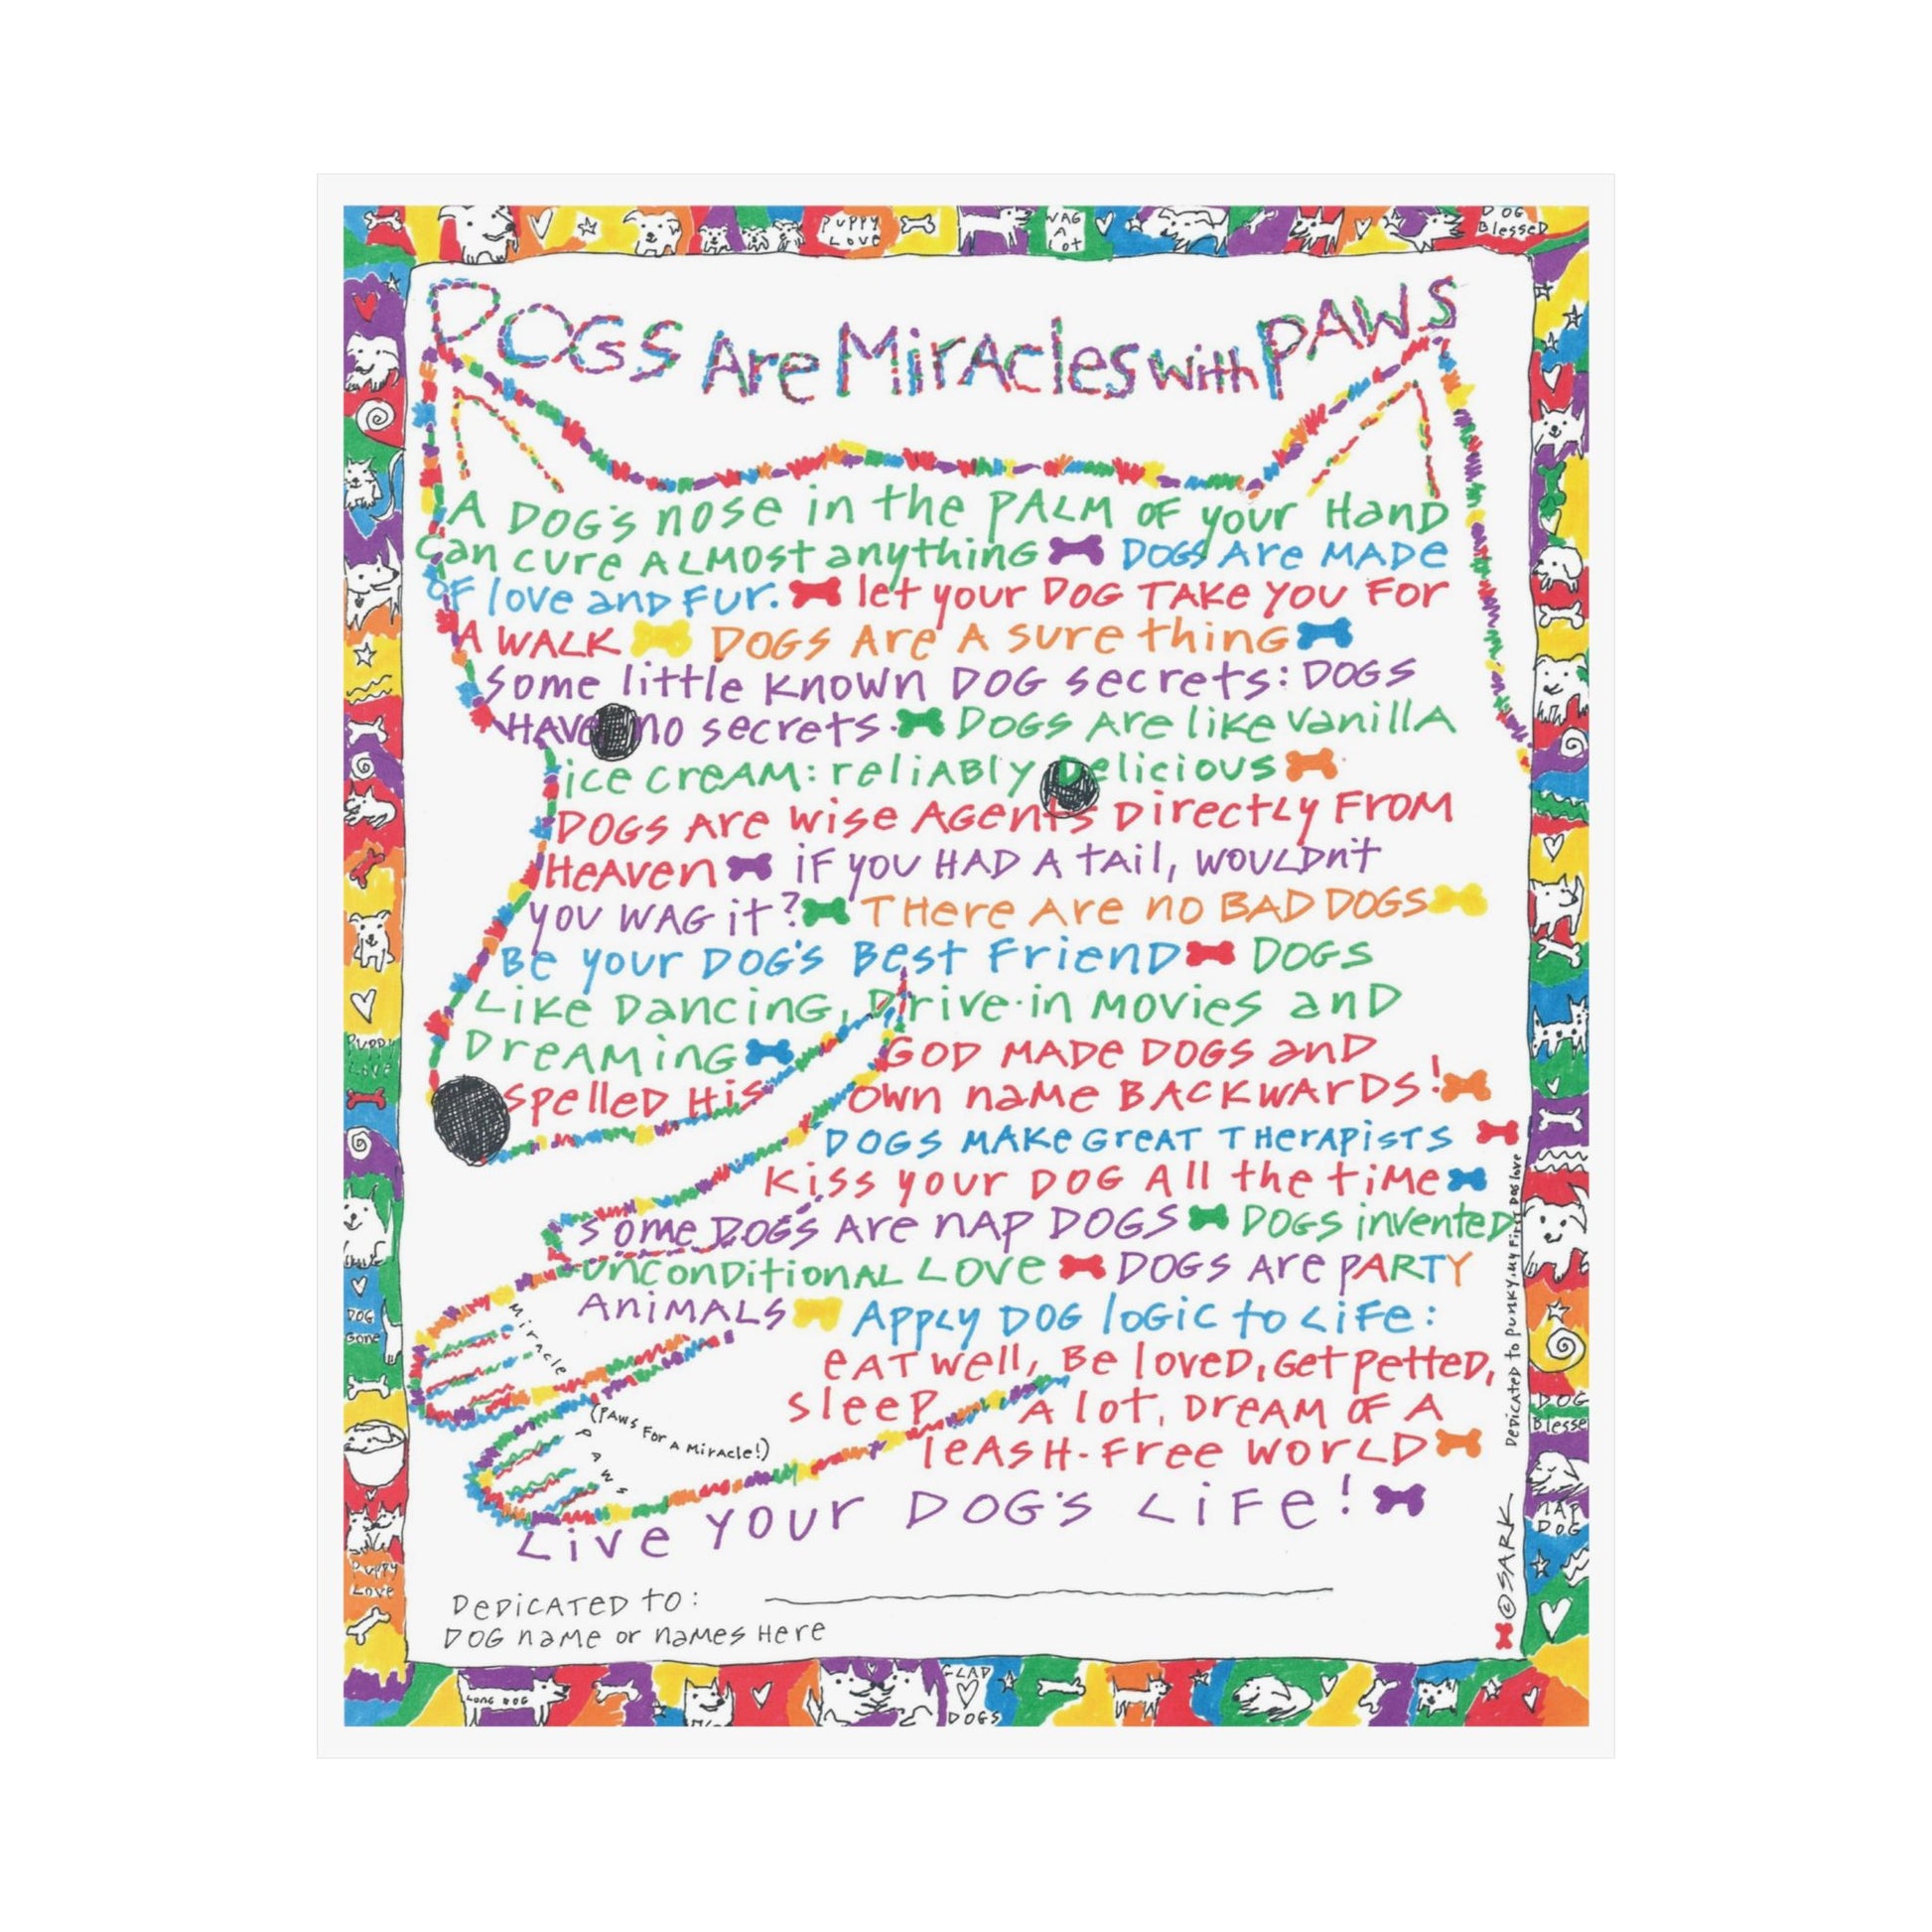 PUPPY
LOVE
WAG
A
LOT
DOG
BLesseD
DOGS Are MirAcles with PAWS
A DOG'S nose in the PALM OF your HanD
Can cure ALMOst anything DOGS Are MADe
OF love anD Fur. let your DOG TAKe YOU FOr
A WALK DOGS Are A sure thing
Some little Known DOG secrets: DOGS
HAVe no secrets. DOGS Are like vanillA
ice creAM: reliABly Delicious
DOGS Are wise Agents Directly FroM
HeAven iF you HAD A tAil, WOULDn't
you WAG it? THere Are no BAD DOGS
Be your DOG'S Best FrienD DOGS
Like Dancing, Drive-in Movies anD
DreAMing GOD MADe DOGS anD
Spelled His own name BACKWArDS!
DOGS MAKe GreAT THerApists
Kiss your DOG All the tiMe
Some DOGS Are nAP DOGS DOGS invented
UnconDitionAL Love DOGS Are PARTY
AniMALS Apply DOG logic to LiFe:
eAT well, Be loveD, Get petteD,
sleep A lot, DreAM OF A
leASH-Free worLD
Live your DOG'S LiFe!
Miracle
(PAWS For A Miracle!)
PAWS
DeDicATeD to:
DOG name or names Here
DeDicATeD to Punky, My First Dog love
© SARK
PUPPY
LOVE
DOG
Gone
Puppy
Love
DOG
Blesse
LAP
DOG
LONG DOG
GLAD
DOGS